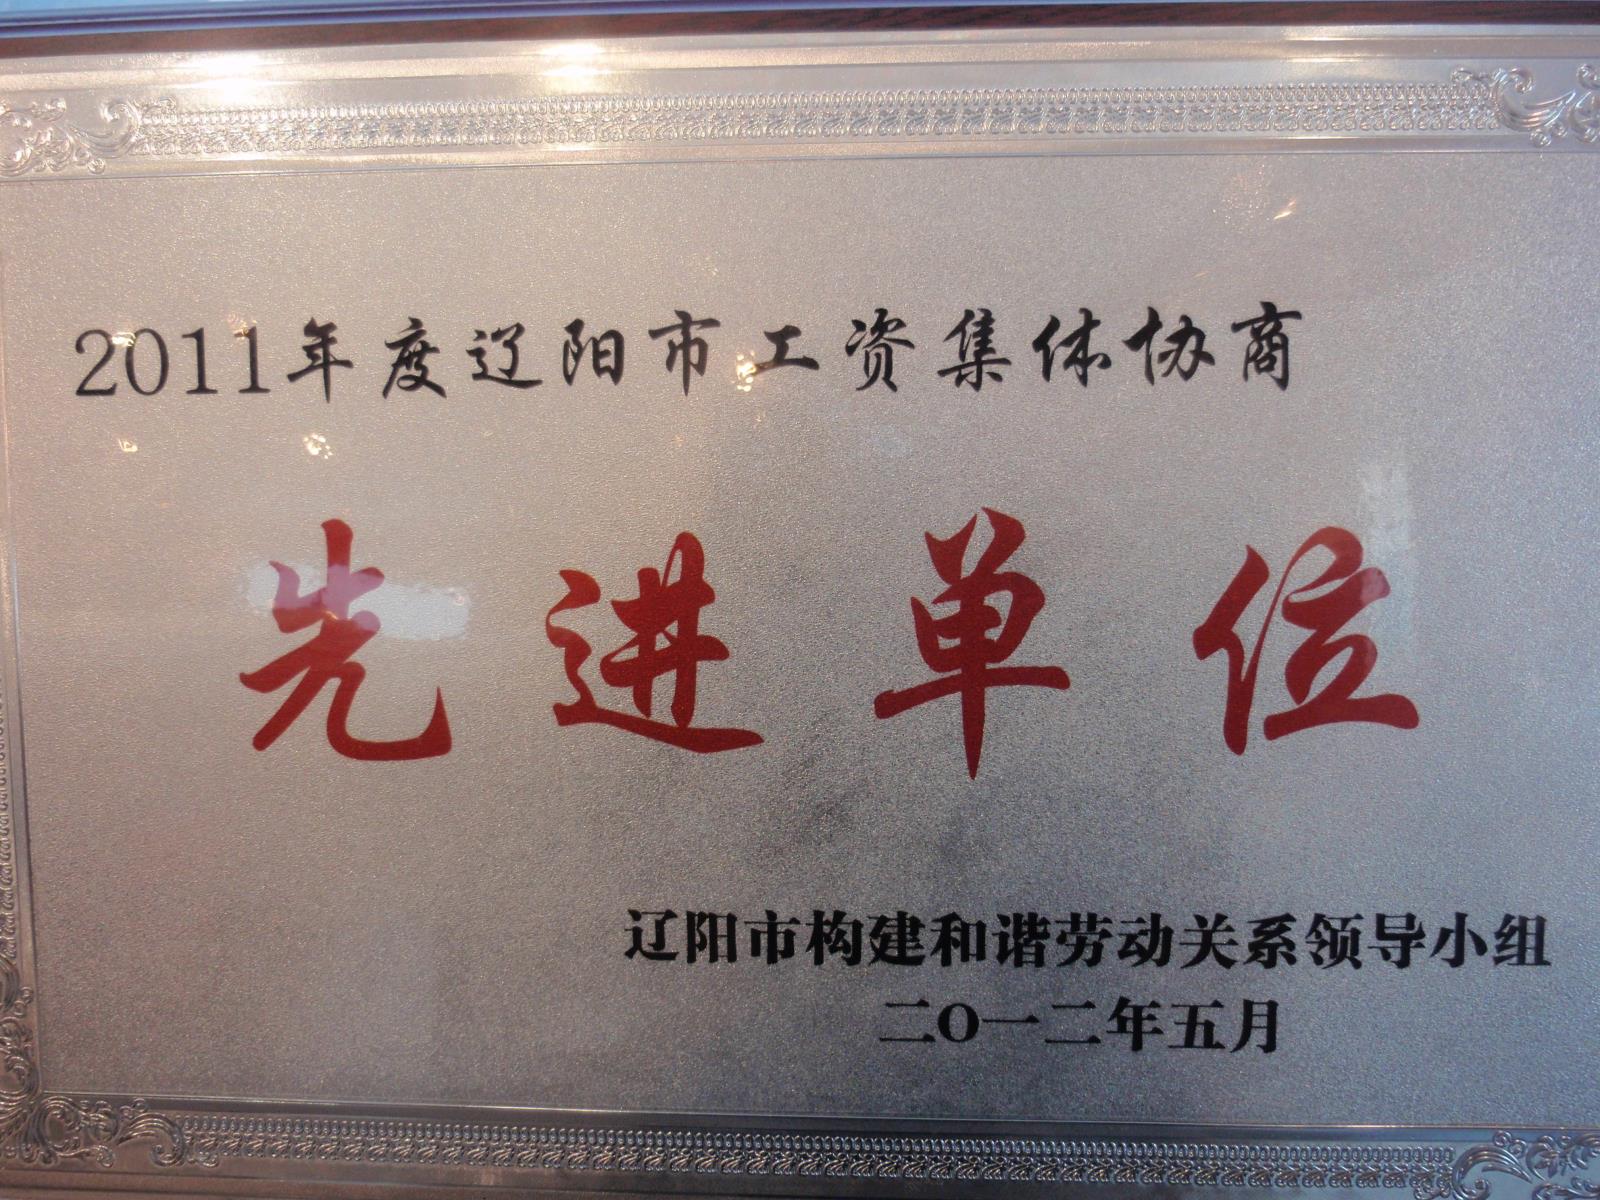 2011年度辽阳市工资集体协商
先进单位
辽阳市构建和谐劳动关系领导小组
二〇一二年五月